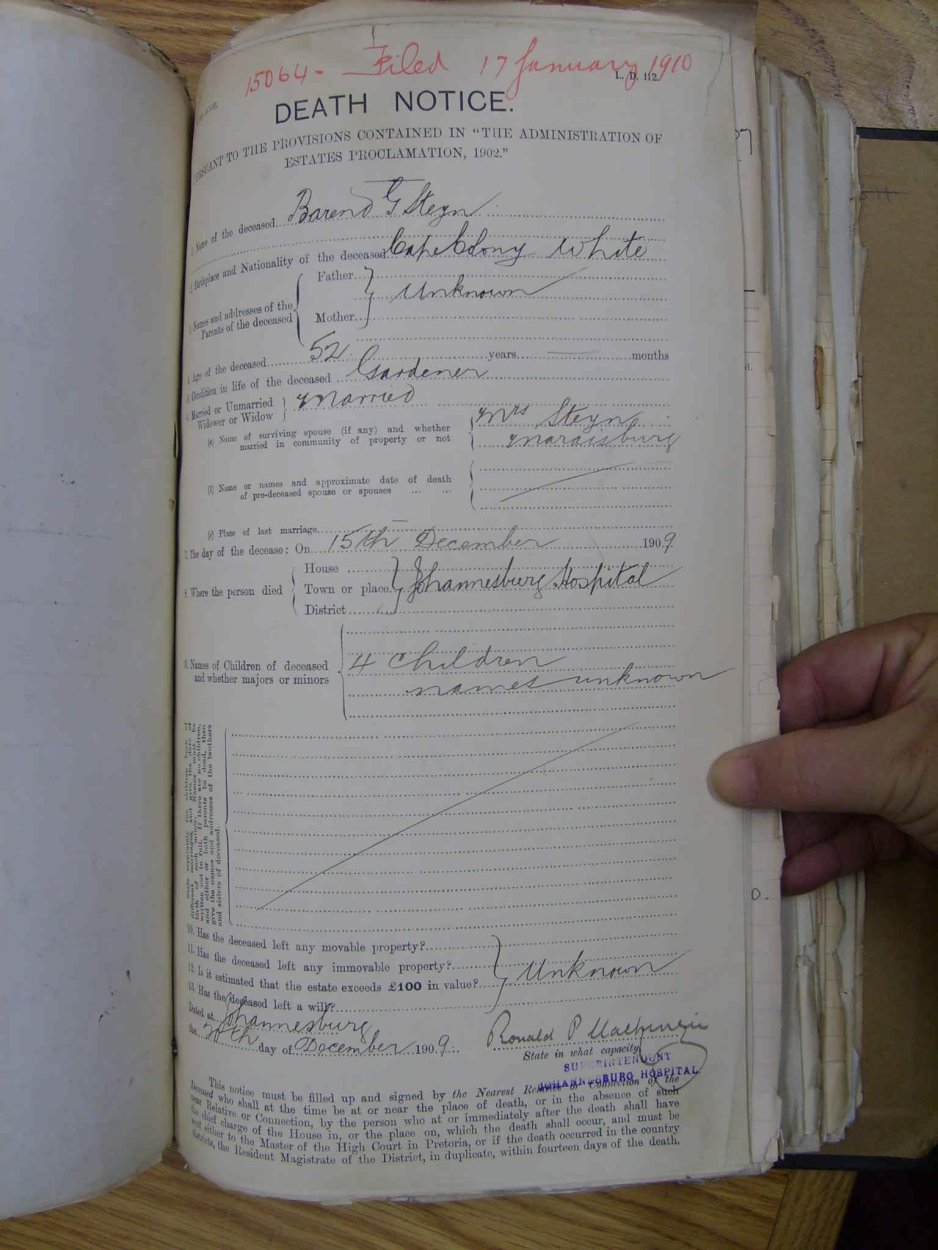 15064. Filed 17 January 1910
L. D. 112.
DEATH NOTICE.
PURSUANT TO THE PROVISIONS CONTAINED IN "THE ADMINISTRATION OF
ESTATES PROCLAMATION, 1902."
1. Name of the deceased Barend G Steyn
2. Birthplace and Nationality of the deceased Cape Colony White
3. Names and addresses of the Parents of the deceased
Father
Unknown
Mother
4. Age of the deceased 52 years — months
5. Condition in life of the deceased Gardener
6. Married or Unmarried Widower or Widow Married
(a) Name of surviving spouse (if any) and whether married in community of property or not
Mrs Steyn
Maraisburg
(b) Name or names and approximate date of death
of pre-deceased spouse or spouses ... ...
(c) Place of last marriage —
7. The day of the decease: On 15th December 1909
8. Where the person died
House
Town or place Johannesburg Hospital
District
9. Names of Children of deceased
and whether majors or minors
4 children
names unknown
and sisters of deceased.
10. Has the deceased left any movable property?
11. Has the deceased left any immovable property?
12. Is it estimated that the estate exceeds £100 in value? Unknown
13. Has the deceased left a will?
Dated at Johannesburg
the 20th day of December 1909.
Ronald P Mackenzie
State in what capacity
SUPERINTENDENT
JOHANNESBURG HOSPITAL
This notice must be filled up and signed by the Nearest Relative or Connection of the
Deceased who shall at the time be at or near the place of death, or in the absence of such
near Relative or Connection, by the person who at or immediately after the death shall have
the chief charge of the House in, or the place on, which the death shall occur, and must be
sent either to the Master of the High Court in Pretoria, or if the death occurred in the country
districts, the Resident Magistrate of the District, in duplicate, within fourteen days of the death.
D.